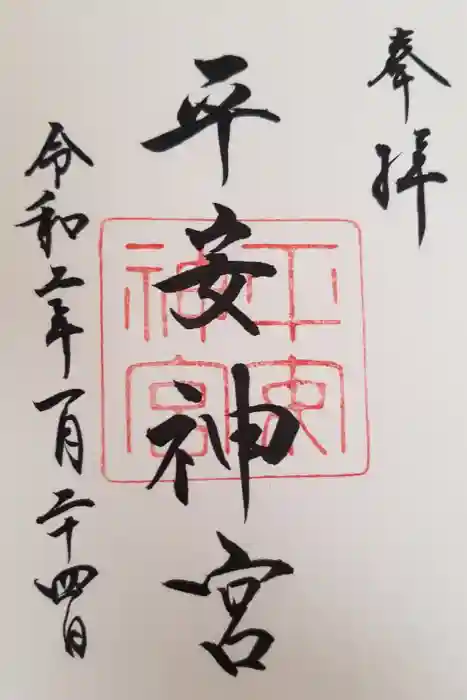 奉拝
平安神宮
令和二年一月二十四日
平安
神宮